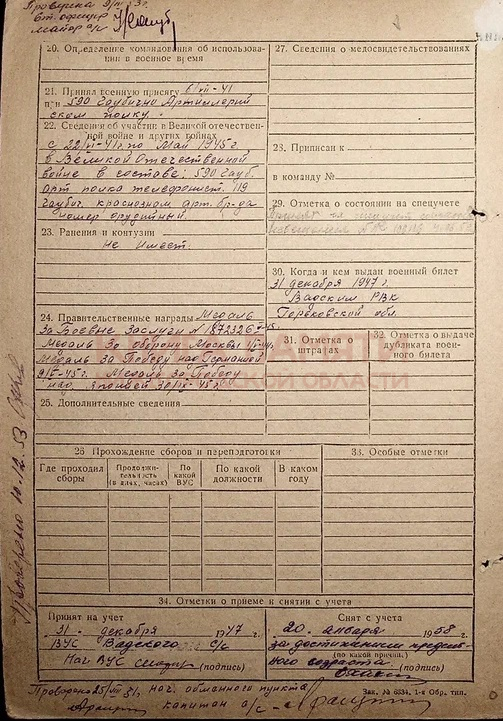 Проверка
майор а/с
20. Определение командования об использовании
в военное время
27. Сведения о медосвидетельствованиях
21. Принял военную присягу 6/VII-41
при 590 Гаубично Артиллерий
ском полку.
22. Сведения об участии в Великой отечествен-
ной войне и других войнах
с 22/VI-41г. по Май 1945г
в Великой Отечественной
войне в составе: 590 гауб.
арт полка телефонист. 119
гаубич. краснознам. арт. бр-да
номер орудийный.
28. Приписан к
в команду №
29. Отметка о состоянии на спецучете
23. Ранения и контузии
Не имеет
30. Когда и кем выдан военный билет
31 декабря 1947г.
Вадским РВК
Горьковской обл.
24. Правительственные награды Медаль
За Боевые Заслуги N 1872326
Медаль За оборону Москвы
Медаль За Победу над Германией
9/V-45г. Медаль За Победу
над Японией 30/IX-45г.
31. Отметка о
штрафах
32. Отметка о выдаче
дубликата воен-
ного билета
25. Дополнительные сведения
ОБЛАСТИ
26 Прохождение сборов и переподготовки
33. Особые отметки
Где проходил
сборы
Продолжи-
тельность
(в днях, часах)
По
какой
ВУС
По какой
должности
В каком
году
34. Отметки о приеме и снятии с учета
Принят на учет
31. декабря 1947 г.
ВУС Вадского с/с
Нач ВУС (подпись)
Снят с учета
20. января 1958 г.
за достижением предель-
(по какой причине)
ного возраста
(подпись)
Проверено 25/VII 51. нач. обменного пункта
капитан а/с
Зак. № 6834. 1-я Обр. тип.
Проверено 10.12.53